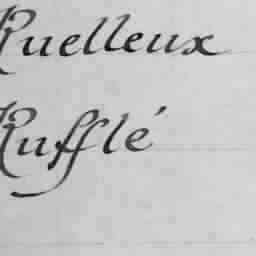 Ruelleux
Rufflé